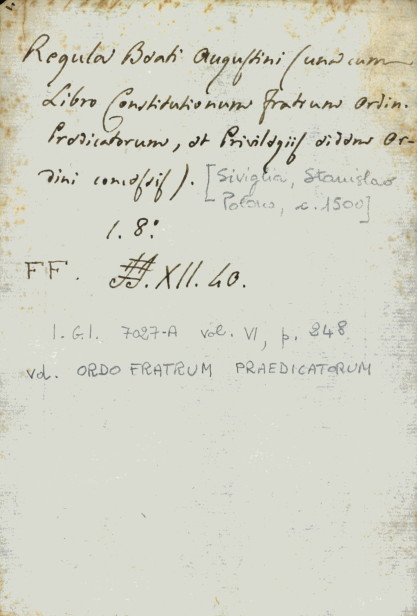 Regula Beati Augustini (una cum
Libro Constitutionum fratrum Ordin.
Predicatorum, et Privilegiis eidem Or-
dini concessis). [Siviglia, Stanislao
Polono, c. 1500]
1. 8:
FF. XII. 40.
I. G. I. 7027-A vol. VI, p. 248
vd. ORDO FRATRUM PRAEDICATORUM